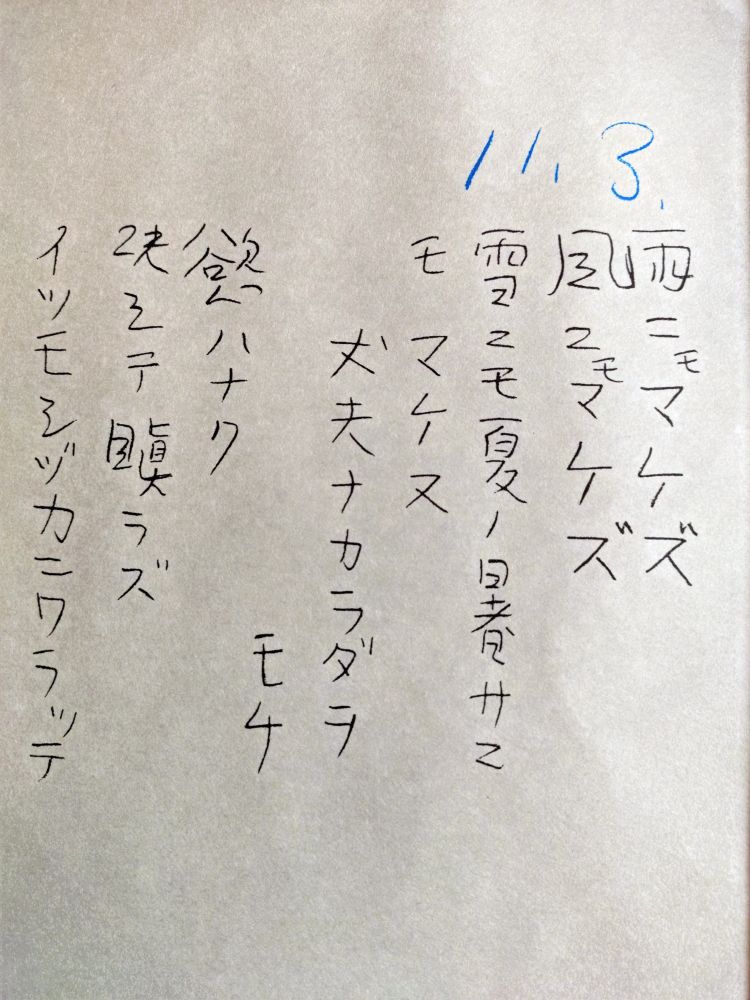 11.3.
雨ニモマケズ
風ニモマケズ
雪ニモ夏ノ暑サニ
モ マケヌ
丈夫ナカラダヲ
モチ
慾ハナク
決シテ瞋ラズ
イツモシヅカニワラッテ